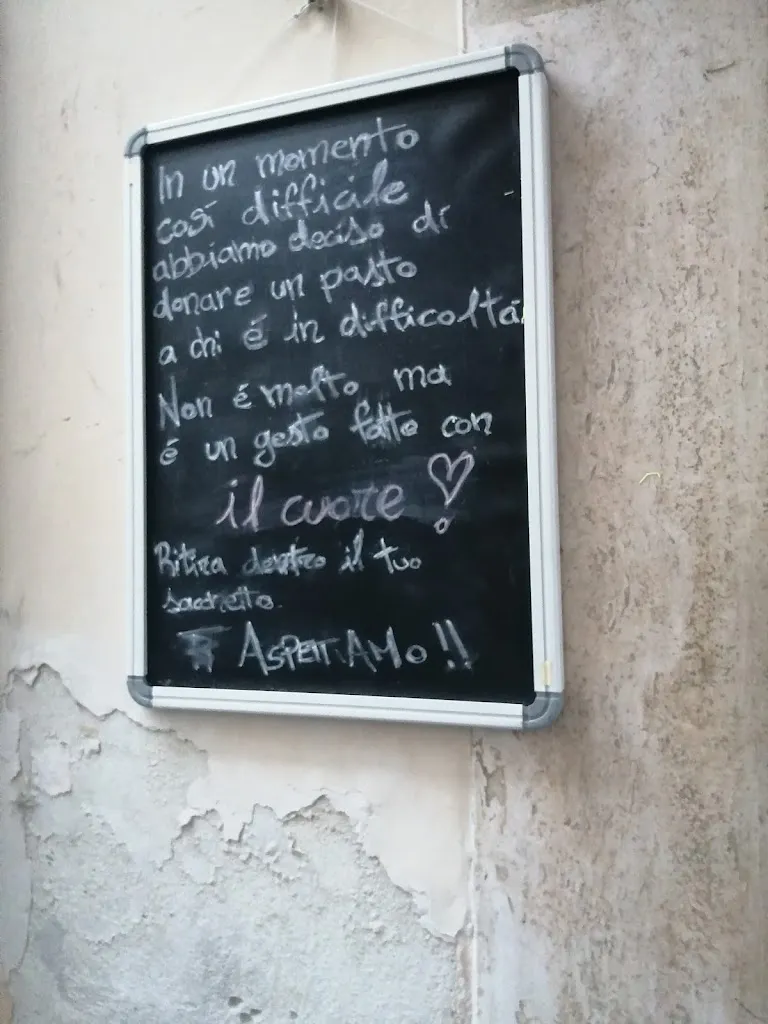 In un momento
così difficile
abbiamo deciso di
donare un pasto
a chi é in difficoltá
Non é molto ma
é un gesto fatto con
il cuore
Ritira dentro il tuo
sacchetto.
TI ASPETTIAMO!!